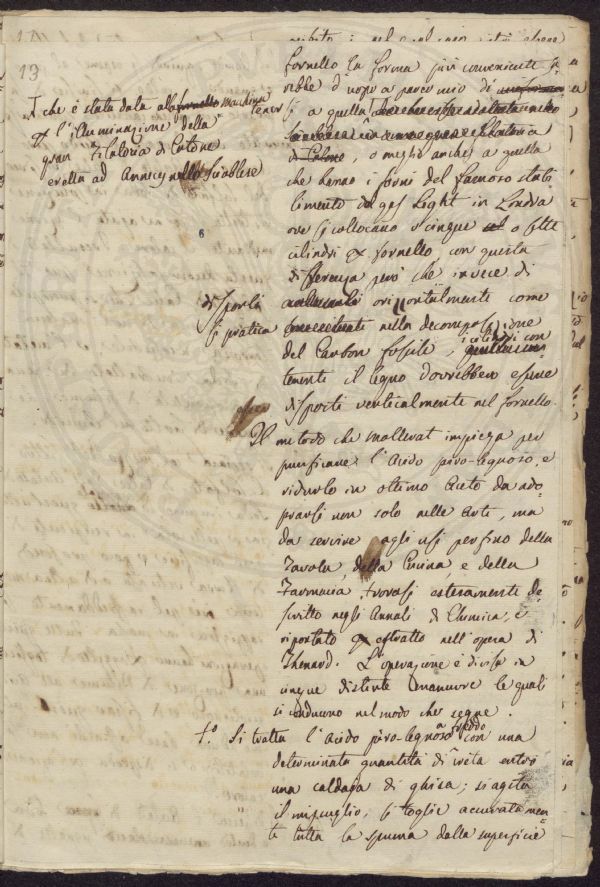 13
fornello la forma più conveniente sa-
rebbe d'uopo a parer mio di
si a quella
di Cotone, o meglio anche a quella
che hanno i forni del famoso stabi
limento da gas Light in Londra
ove si collocano 5 cinque o sette
cilindri per fornello, con questa
differenza però che invece di
disporli orizzontalmente come
si pratica nella decomposizione
del Carbon fossile, i cilindri con
tenenti il legno dovrebbero essere
disposti verticalmente nel fornello.
che è stata data alla fornello macchina
per l'illuminazione della
gran Filatoria di Cotone
eretta ad Annecy nello Sciablese
Il metodo che mollerat impiega per
purificare l'Acido piro-legnoso, e
ridurlo in ottimo Aceto da ado
prarsi non solo nelle Arti, ma
da servire agli usi perfino della
Tavola, della Cucina, e della
Farmacia, trovasi esteramente de
scritto negli Annali di Chimica, e
riportato per estratto nell'opera di
Thenard. L'operazione è divisa in
cinque distinte manuvre le quali
si conducono nel modo che segue.
1.° Si tratta l'Acido piro-legnoso a freddo con una
determinata quantità di creta entro
una caldaja di ghisa; si agita
il miscuglio, si toglie accuratamen
te tutta la spuma dalla superficie